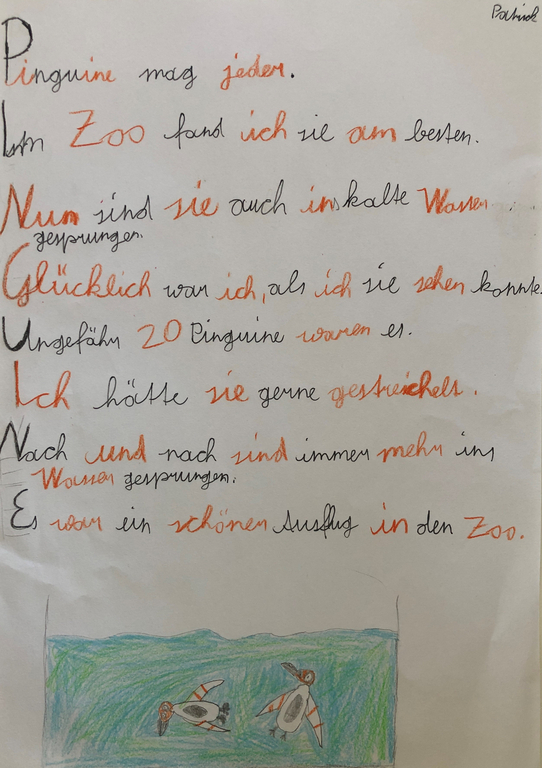 Patrick
Pinguine mag jeder.
Im Zoo fand ich sie am besten.
Nun sind sie auch ins kalte Wasser
gesprungen.
Glücklich war ich, als ich sie sehen konnte.
Ungefähr 20 Pinguine waren es.
Ich hätte sie gerne gestreichelt.
Nach und nach sind immer mehr ins
Wasser gesprungen.
Es war ein schönen Ausflug in den Zoo.